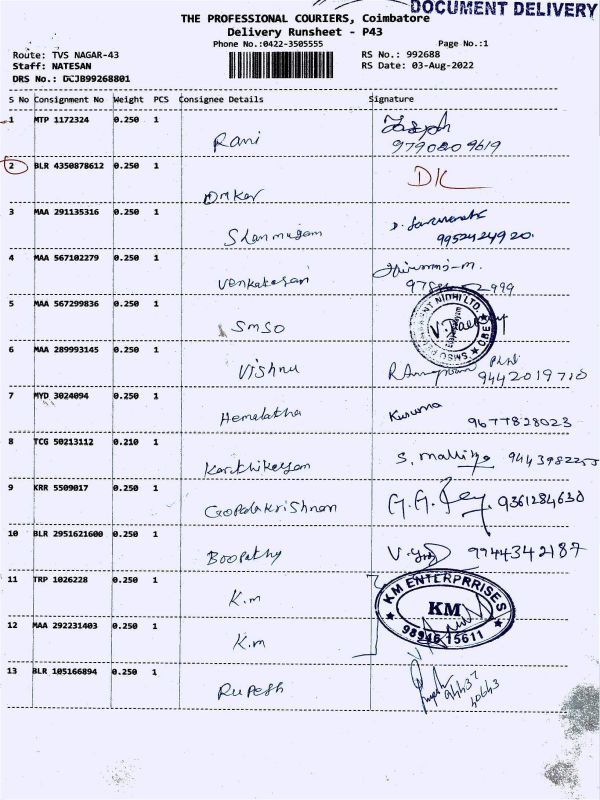 DOCUMENT DELIVERY
THE PROFESSIONAL COURIERS, Coimbatore
Delivery Runsheet - P43
Phone No.:0422-3505555 Page No.:1
Route: TVS NAGAR-43 RS No.: 992688
Staff: NATESAN RS Date: 03-Aug-2022
DRS No.: DCJB99268801
S No Consignment No Weight PCS Consignee Details Signature
1 MTP 1172324 0.250 1
Rani 9790809619
2 BLR 4350878612 0.250 1 DK
3 MAA 291135316 0.250 1
Shanmugam 9952424920.
4 MAA 567102279 0.250 1
Venkatesan
5 MAA 567299836 0.250 1
SMSO SMSO PERMANENT NIDHI LTD. CBE
6 MAA 289993145 0.250 1
Vishnu 9442019710
7 MYD 3024094 0.250 1
Hemalatha Kusuma 9677828023
8 TCG 50213112 0.210 1
Karthikeyan S. 
9 KRR 5509017 0.250 1
Gopalakrishnan 9361284630
10 BLR 2951621600 0.250 1
Boopathy 9944342187
11 TRP 1026228 0.250 1
K.m KM ENTERPRRISES
KM
12 MAA 292231403 0.250 1 98946 15611
K.m
13 BLR 105166894 0.250 1
Rupesh